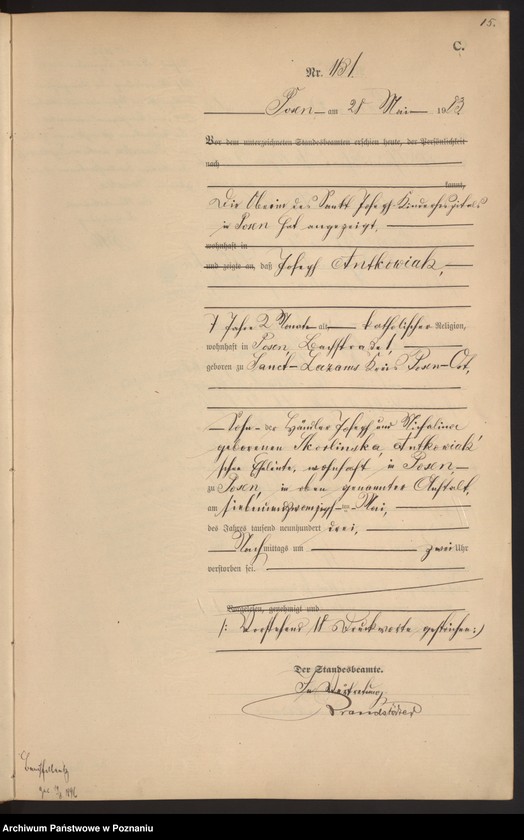 15.
C.
Nr. 1131.
Posen am 28 Mai 1903
Vor dem unterzeichneten Standesbeamten erschien heute, der Persönlichkeit
nach
kannt,
Die Oberin des Sankt Joseph-Kinderhospitals
in Posen hat angezeigt,
wohnhaft in
und zeigte an, daß Joseph Antkowiak,
7 Jahre 2 Monate alt, katholischer Religion,
wohnhaft in Posen, Bachstraße 1,
geboren zu Sanct-Lazarus Kreis Posen-Ost,
Sohn der Händler Joseph und Michalina
geborenen Skorlinska, Antkowiak'
schen Eheleute, wohnhaft in Posen,
zu Posen, in oben genannter Anstalt,
am siebenundzwanzigsten Mai,
des Jahres tausend neunhundert drei,
Nachmittags um zwei Uhr
verstorben sei.
Vorgelesen, genehmigt und
/: Vorstehend 18 Druckworte gestrichen :/
Der Standesbeamte.
In Vertretung
Brandstäter
Archiwum Państwowe w Poznaniu